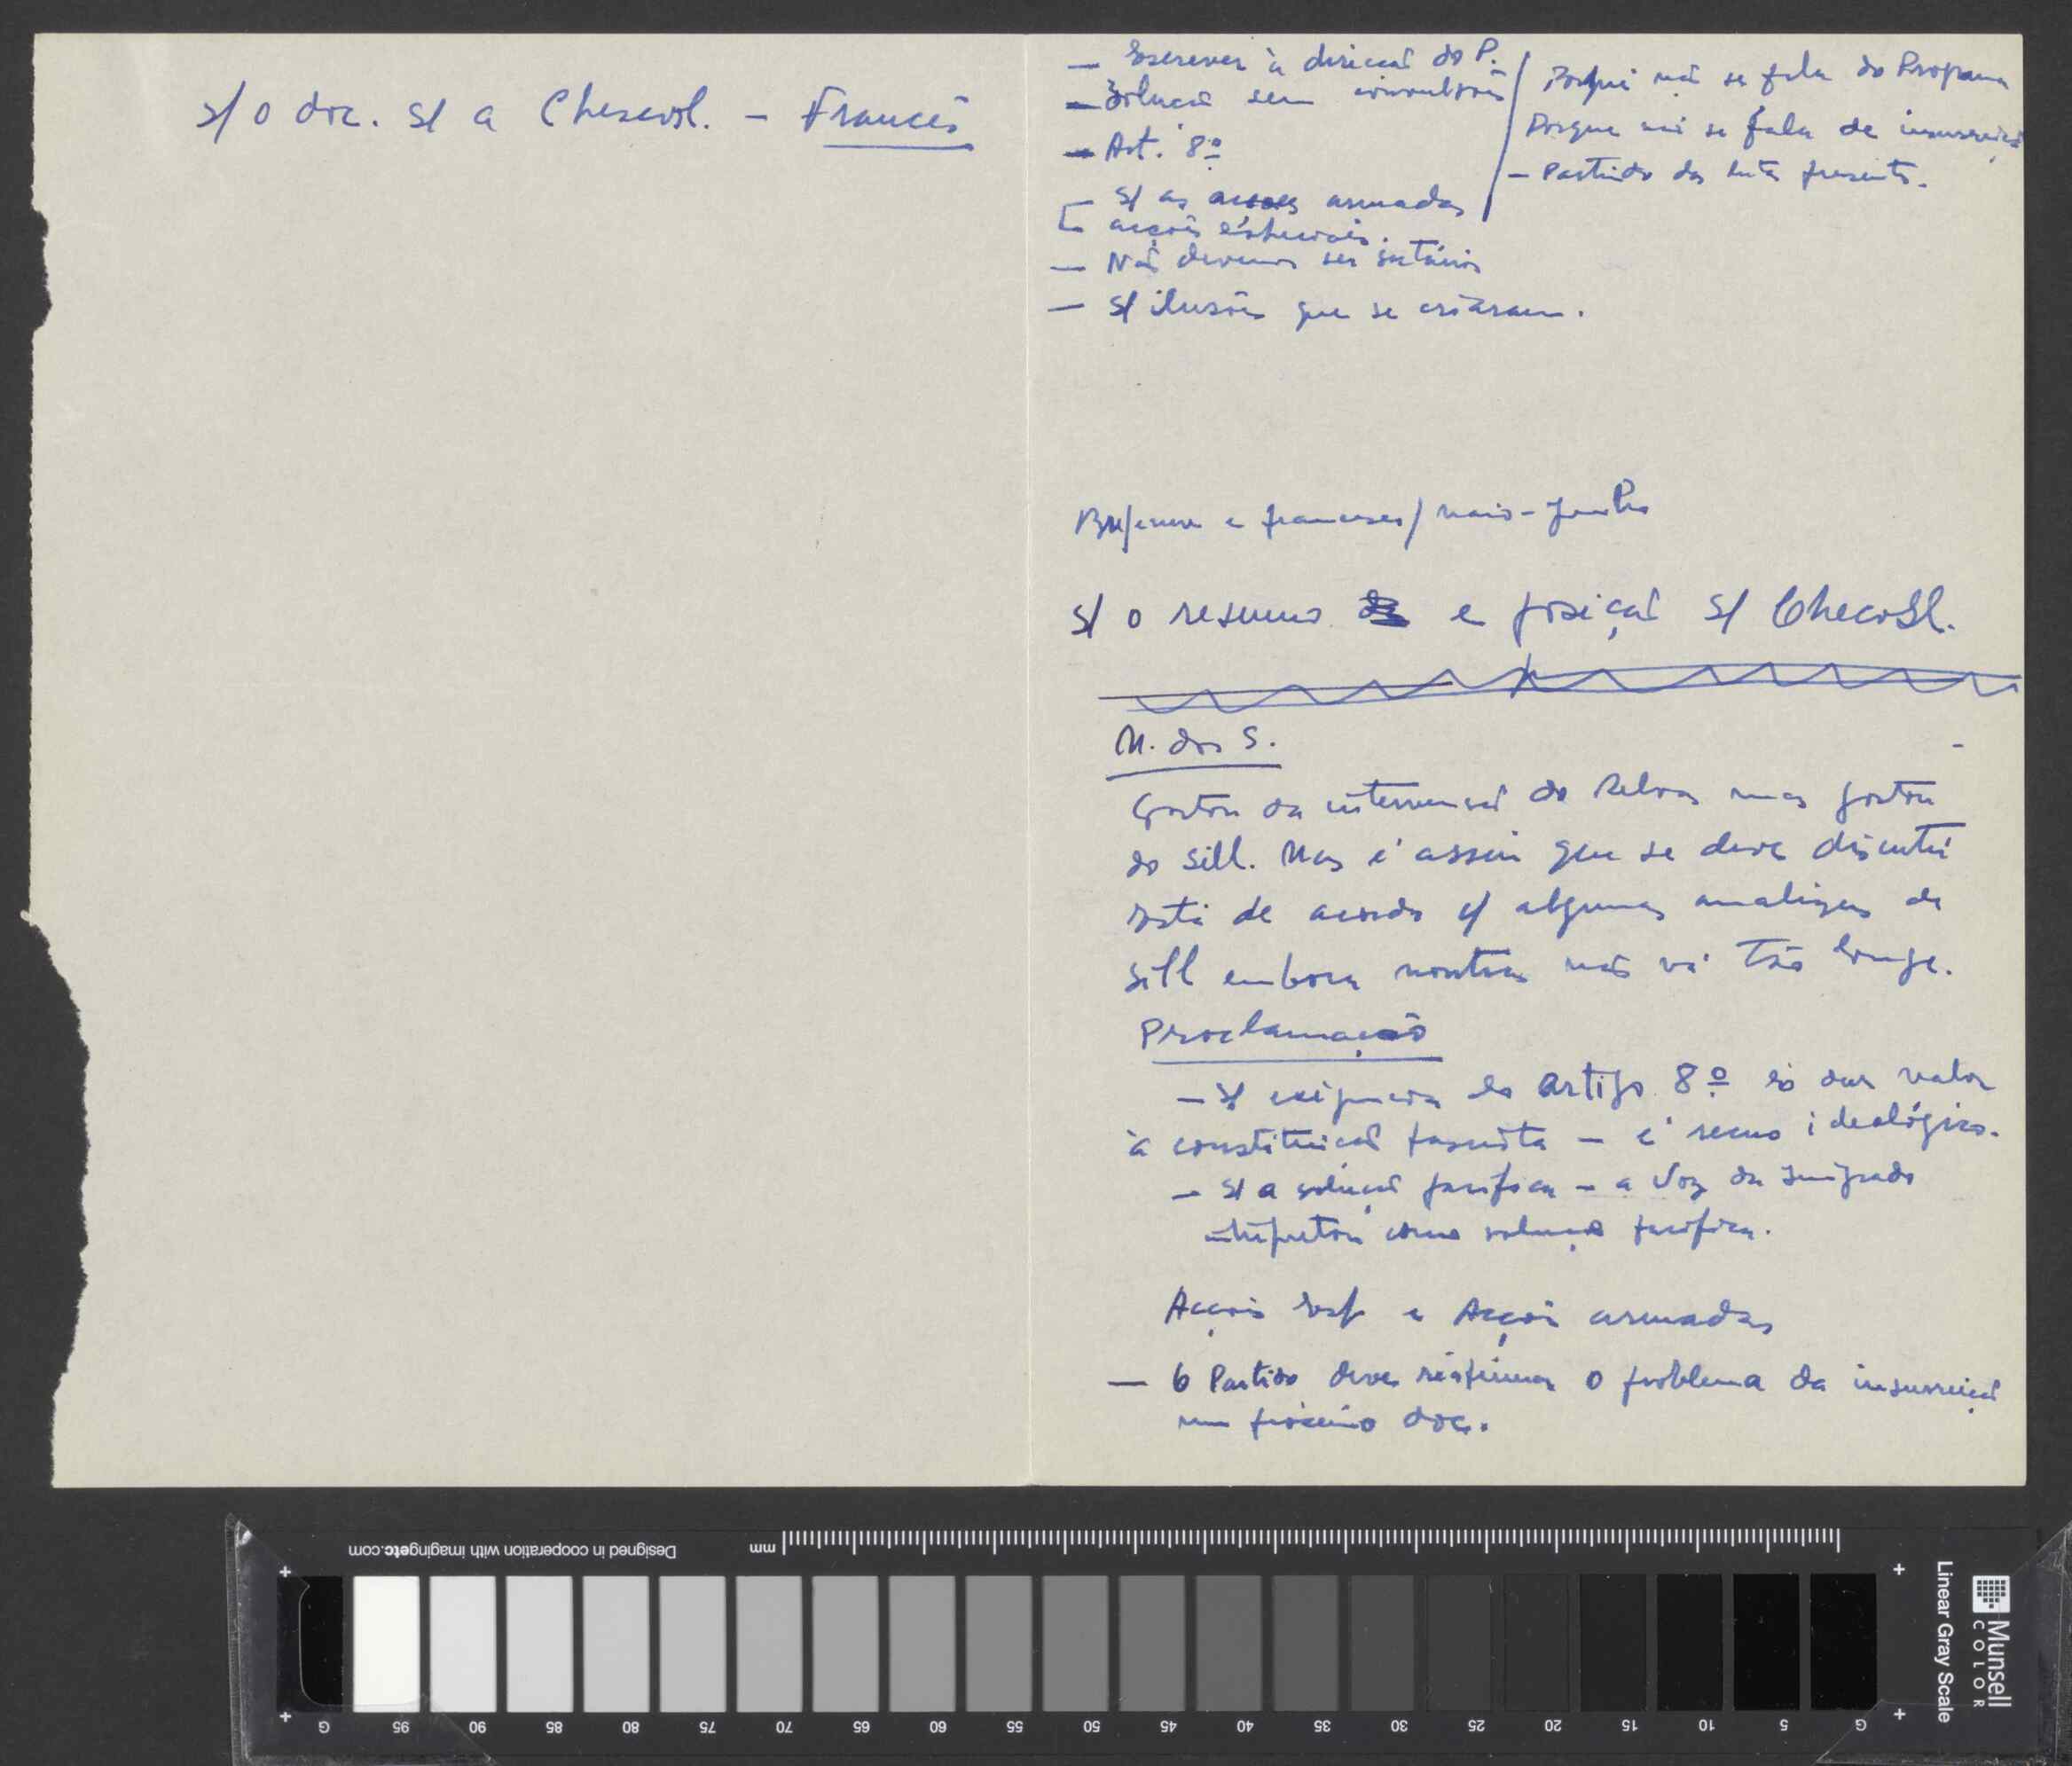 s/ o doc. s/ a Checosl. - Francês
— Escrever à direcção do P.
— Solução sem convulsões
— Art. 8º
— s/ as acções armadas
acções especiais.
— Não devemos ser sectários
— s/ ilusões que se criaram.
Porque não se fala do Programa
Porque não se fala de insurreição
— Partido da luta
e franceses / maio-junho
s/ o resumo e posição s/ Checosl.
M. dos S.
Gostou da intervenção do Relvas mas gostou
do Sill. Mas é assim que se deve discutir
Está de acordo c/ algumas analises de
Sill embora noutras não vá tão longe.
Proclamação
— s/ exigencia do Artigo 8º é dar valor
à constituição fascista — é recuo ideológico.
— s/ a solução pacifica — a Voz do Imigrado
interpretou como solução pacifica.
Acções Esp e Acções armadas
— O Partido deve reafirmar o problema da insurreição
num próximo doc.
Designed in cooperation with imagingetc.com
mm
G 95 90 85 80 75 70 65 60 55 50 45 40 35 30 25 20 15 10 5 G
Munsell
COLOR
Linear Gray Scale